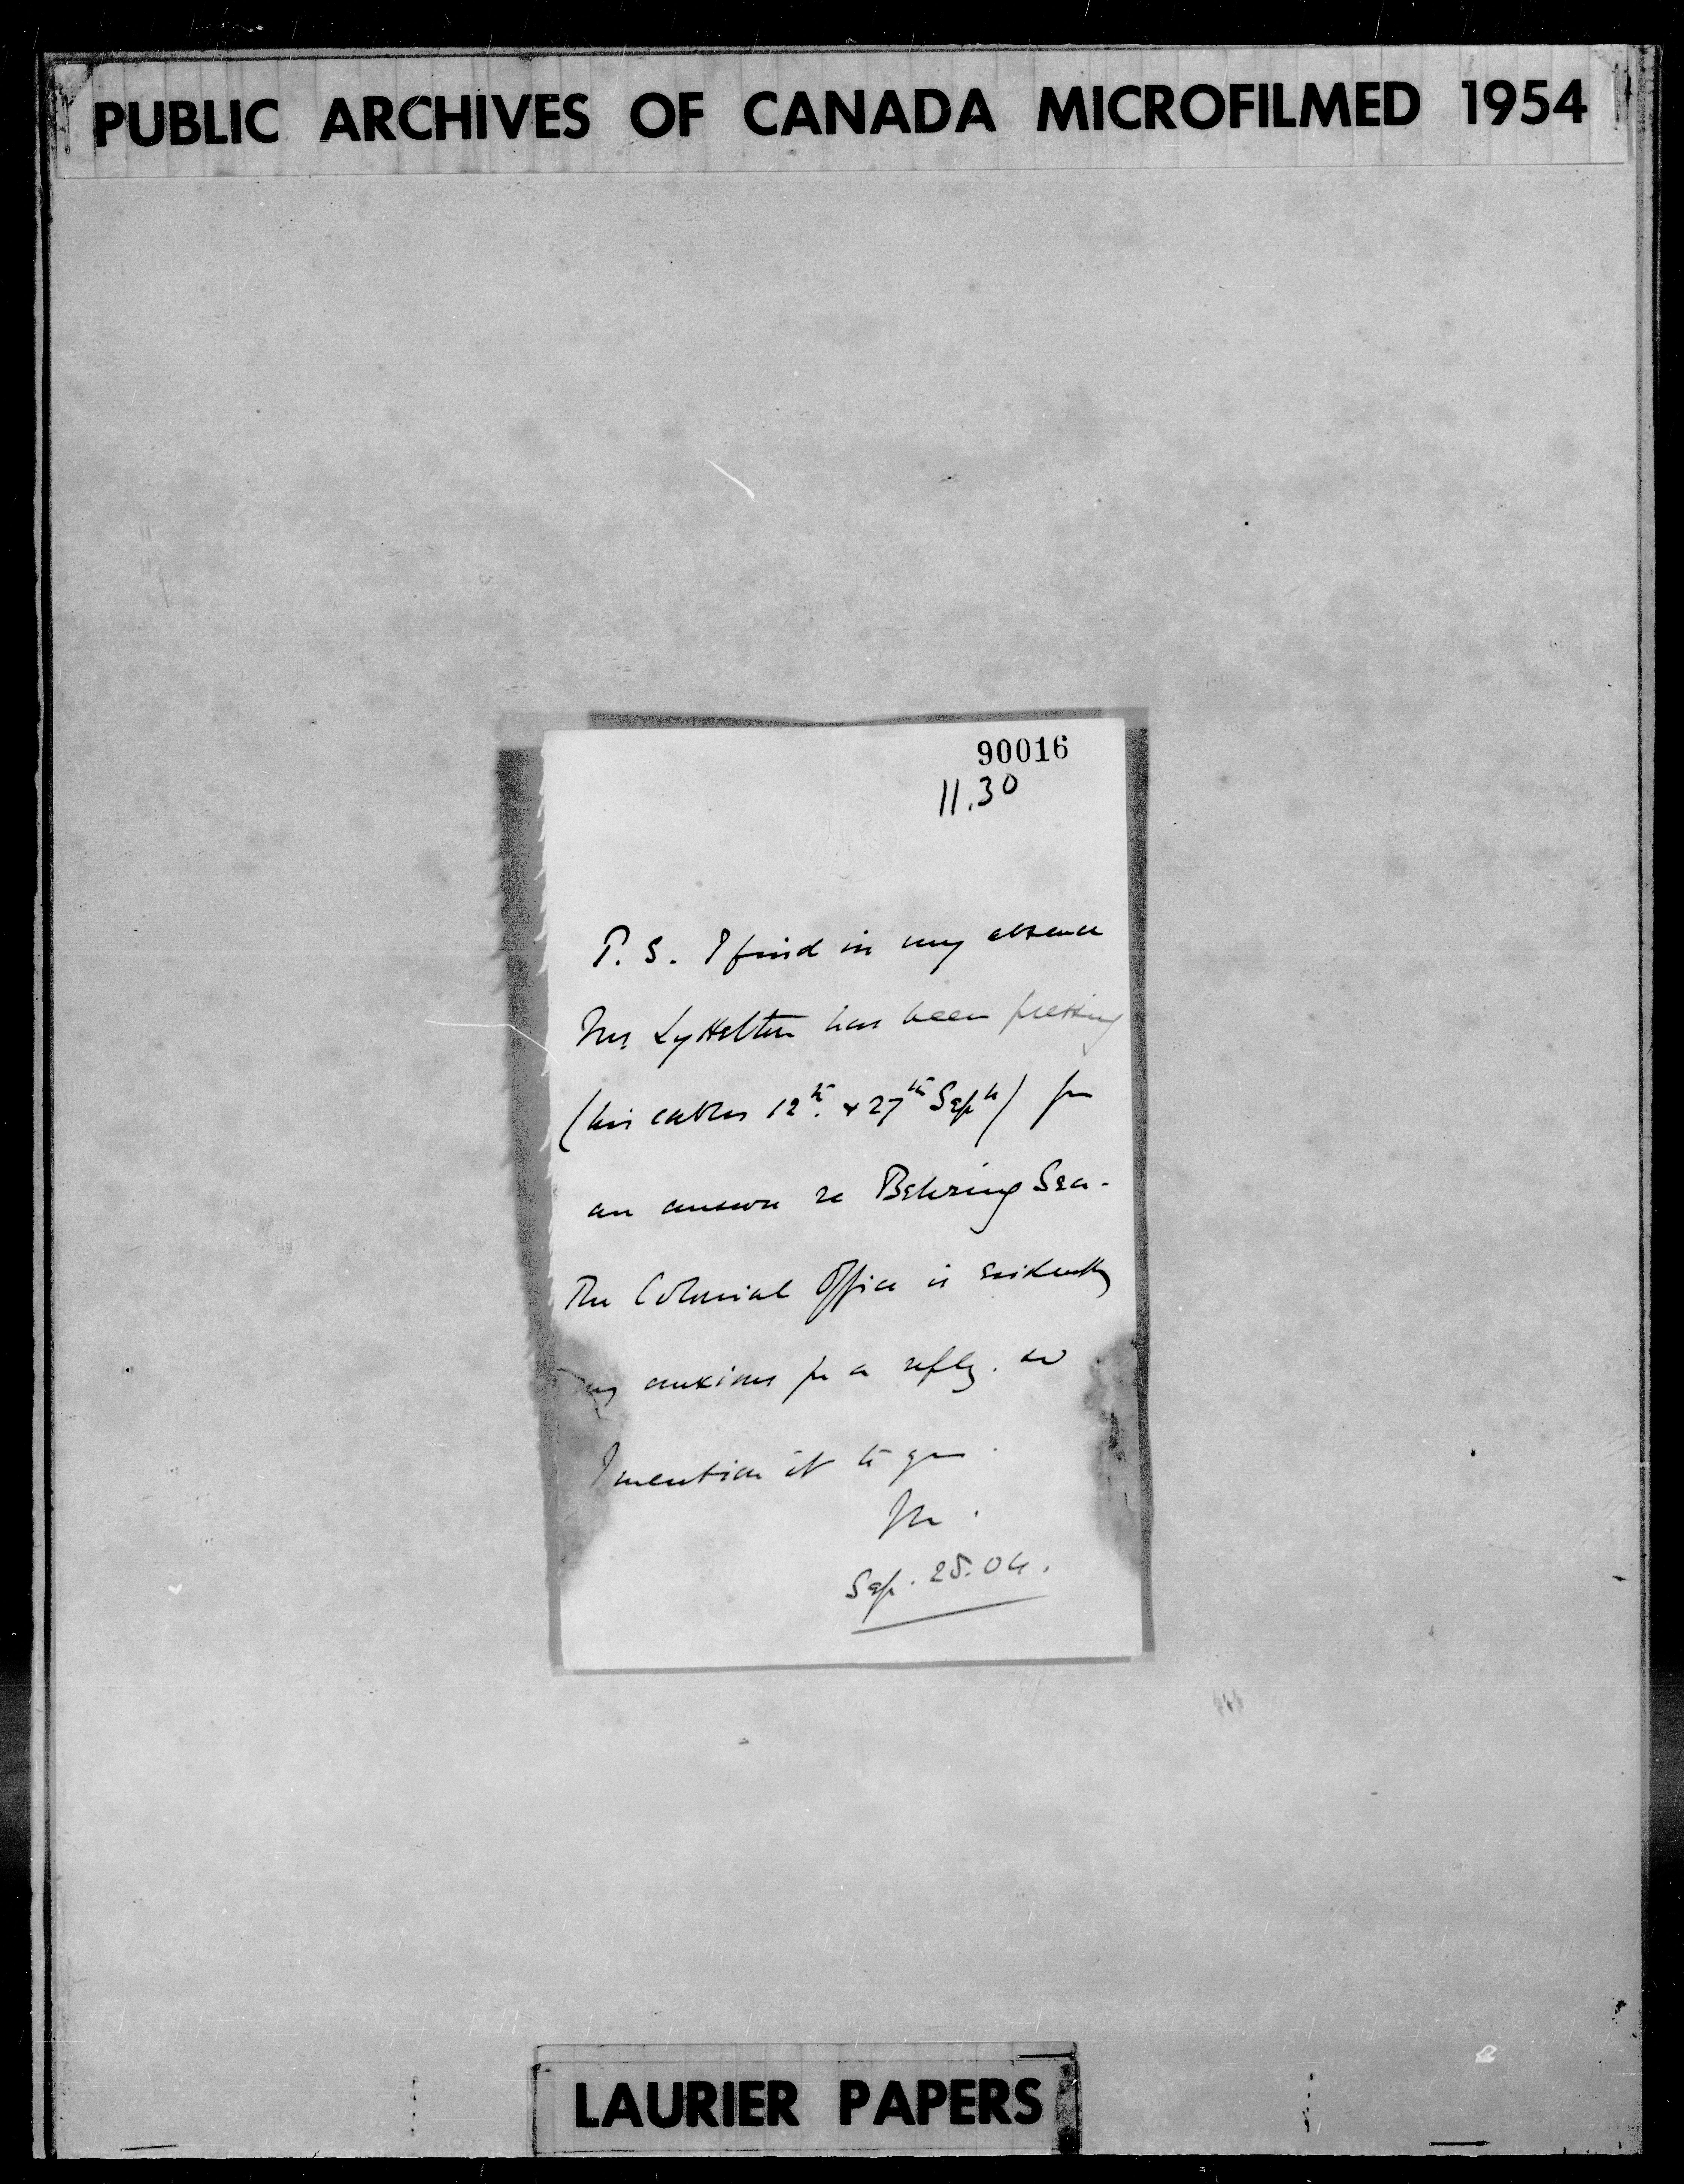 PUBLIC ARCHIVES OF CANADA MICROFILMED 1954
90016
11.30
P. S. I find in my absence
Mr Lyttelton has been pressing
(his cables 12th & 27th Sept) for
an answer re Behring Sea.
The Colonial Office is evidently
anxious for a reply. so
I mention it to you.
M.
Sep. 28. 04.
LAURIER PAPERS